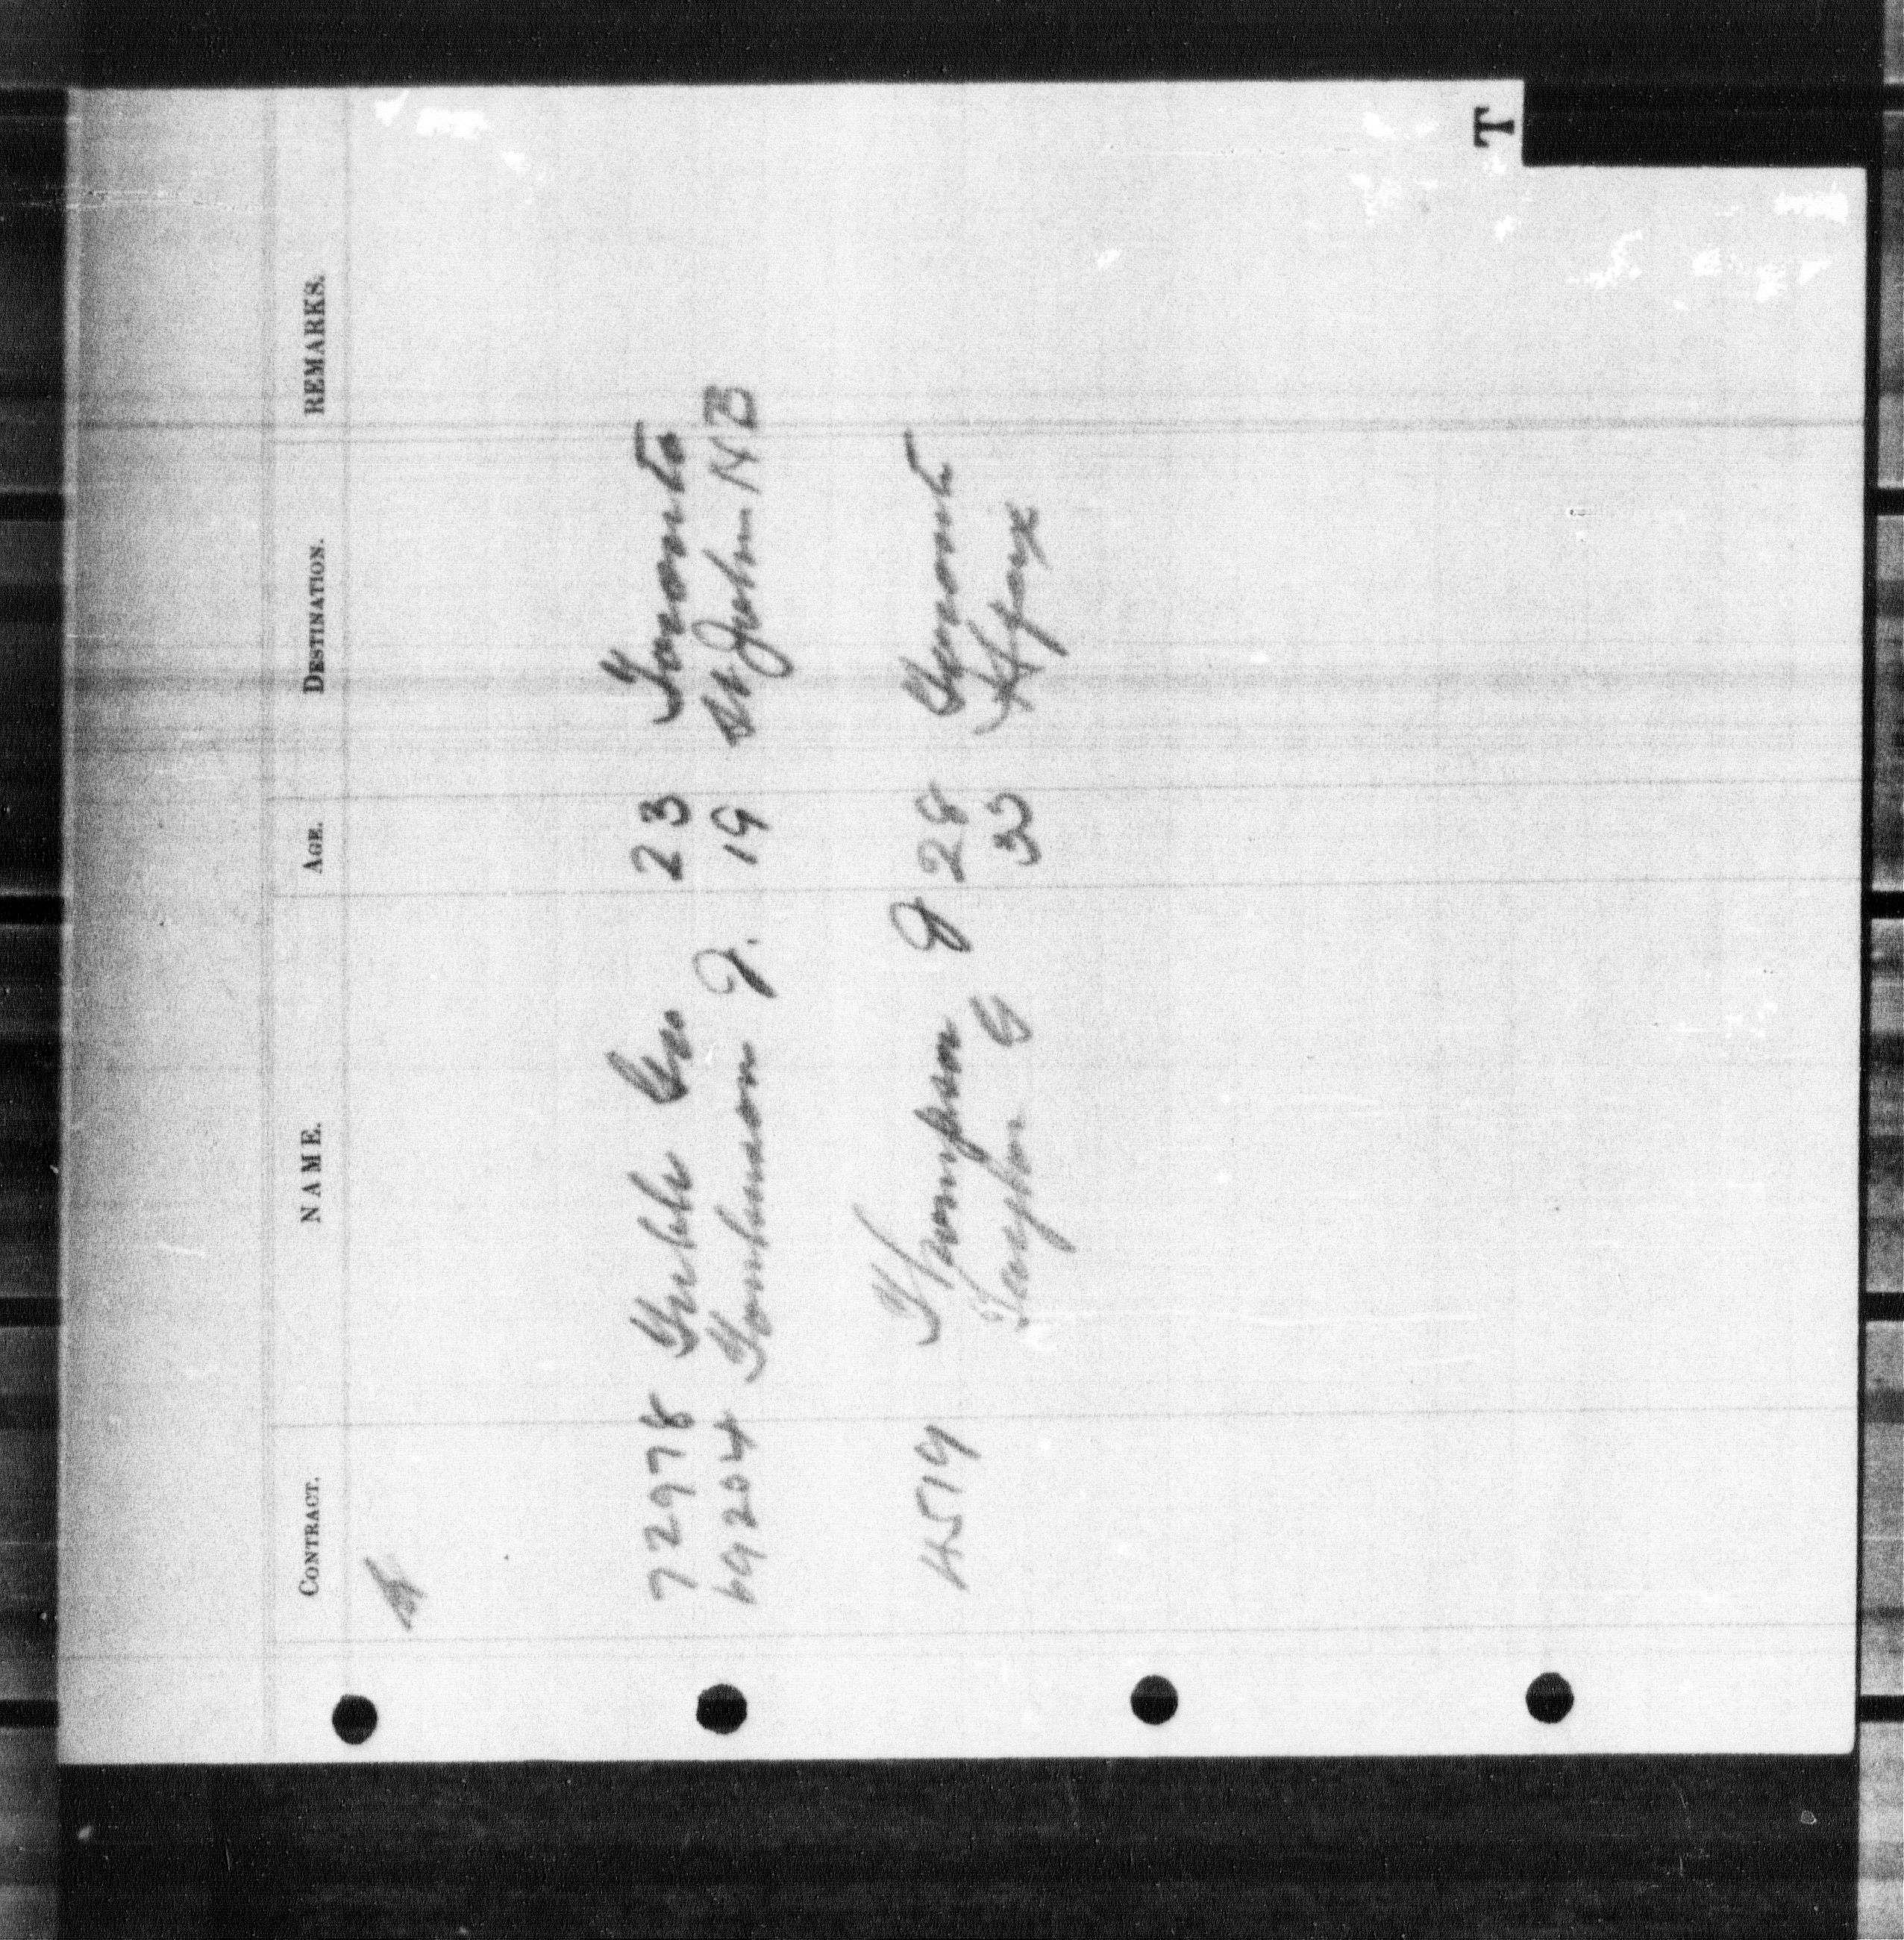 T
CONTRACT. NAME. AGE. DESTINATION. REMARKS.
72978 Geo 23 Toronto
69204 Tomlinson J. 19 St John NB
4519 Thompson J 28 Toronto
G 33 Hfax